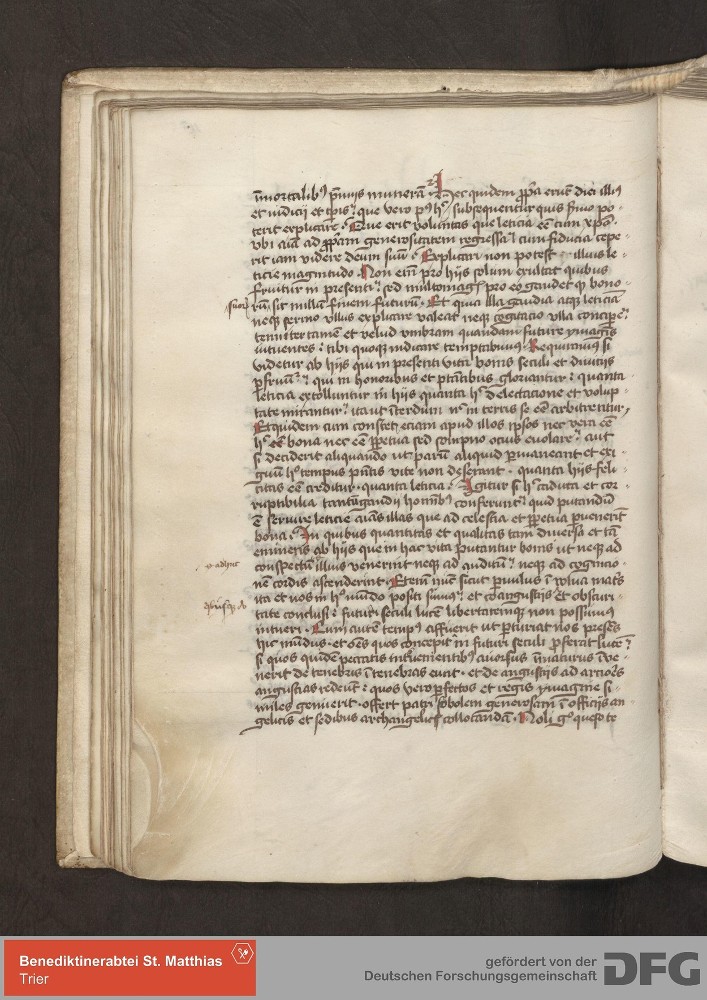 īmortalibꝰ p̄mijs munerā Hec quidem pp̄a erūt diei illiꝰ
et iudicij et tp̄is que vero pꝰ hꝰ subsequentur quis sermo po-
terit explicare Que erit voluntas que leticia ēē cum xp̄o
vbi aīa ad pp̄iam generositatem regressa cum fiducia cepe-
rit iam videre deum suū Explicari non potest illius le-
ticie magnitudo Non eīm pro hijs solum exultat quibus
fruitur in presenti sed multomagꝭ pro eo gaudet qꝫ bono-
suorꝝ
rū sit nullū finem futurū Et quia illa gaudia atqꝫ leticiā
neqꝫ sermo vllus explicare valeat neqꝫ cogitacio vlla concipe
tenuiter tamē et velud vmbram quandam future ymagīs
intuentes tibi quoqꝫ indicare temptabimꝰ Requiramꝰ si
videtur ab hijs qui in presenti vita bonis seculi et diuicijs
pfruūt qui in honoribus et ptātibus gloriantur quanta
leticia extolluntur in hijs quanta hꝰ delectacione et volup-
tate mirantur ita ut īterdum nō in terris se ēē arbitrentur
Et quidem cum constet eciam apud illos ipsos nec vera ēē
hꝰ bona nec ēē ppetua sed sompno ocius euolare aut
si deciderit aliquando ut parū aliquid pmaneant et exi-
guū hꝰ tempus pn̄tis vite non deserant quanta hijs feli-
citas ēē creditur quanta leticia Igitur si hꝰ caduca et cor-
ruptibilia tantū gaudij homībꝰ conferunt quid putandū
ē seruire leticie aīas illas que ad celestia et ppetua puenerīt
bona In quibus quantitas et qualitas tam diuersa et tā
eminens ab hijs que in hac vita putantur bonis ut neqꝫ ad
adhuc
conspectū illius venerint neqꝫ ad auditū neqꝫ ad cogitacio-
nē cordis ascenderint Etenī nūc sicut pruulus ī vulua matrꝭ
ita et nos in hꝰ mūdo positi sumꝰ et angustijs et obscuri-
tate conclusi futuri seculi lucē libertatemqꝫ non possumꝰ
intueri Cum autē tempꝰ affuerit ut pturiat nos presēs
hic mūdus et oēs quos concepit in futuri seculi pferat lucē
si quos quidē peccatis interuenientibꝰ auorsus īmaturus īue-
nerit de tenebris ī tenebras eicit et de angustijs ad arciores
angustias redeūt quos vero pfectos et regis ymagine si-
miles genuerit offert patri sobolem generosam ī officijs an-
gelicis et sedibus archangelicꝭ collocandā Noli gͦ queso te
Benediktinerabtei St. Matthias
Trier
gefördert von der
Deutschen Forschungsgemeinschaft
DFG